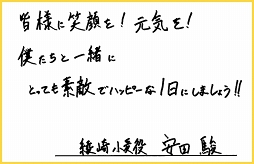 皆様に笑顔を!元気を!
僕たちと一緒に
とっても素敵でハッピーな1日にしましょう!!
篠崎小夏役 安田 駿